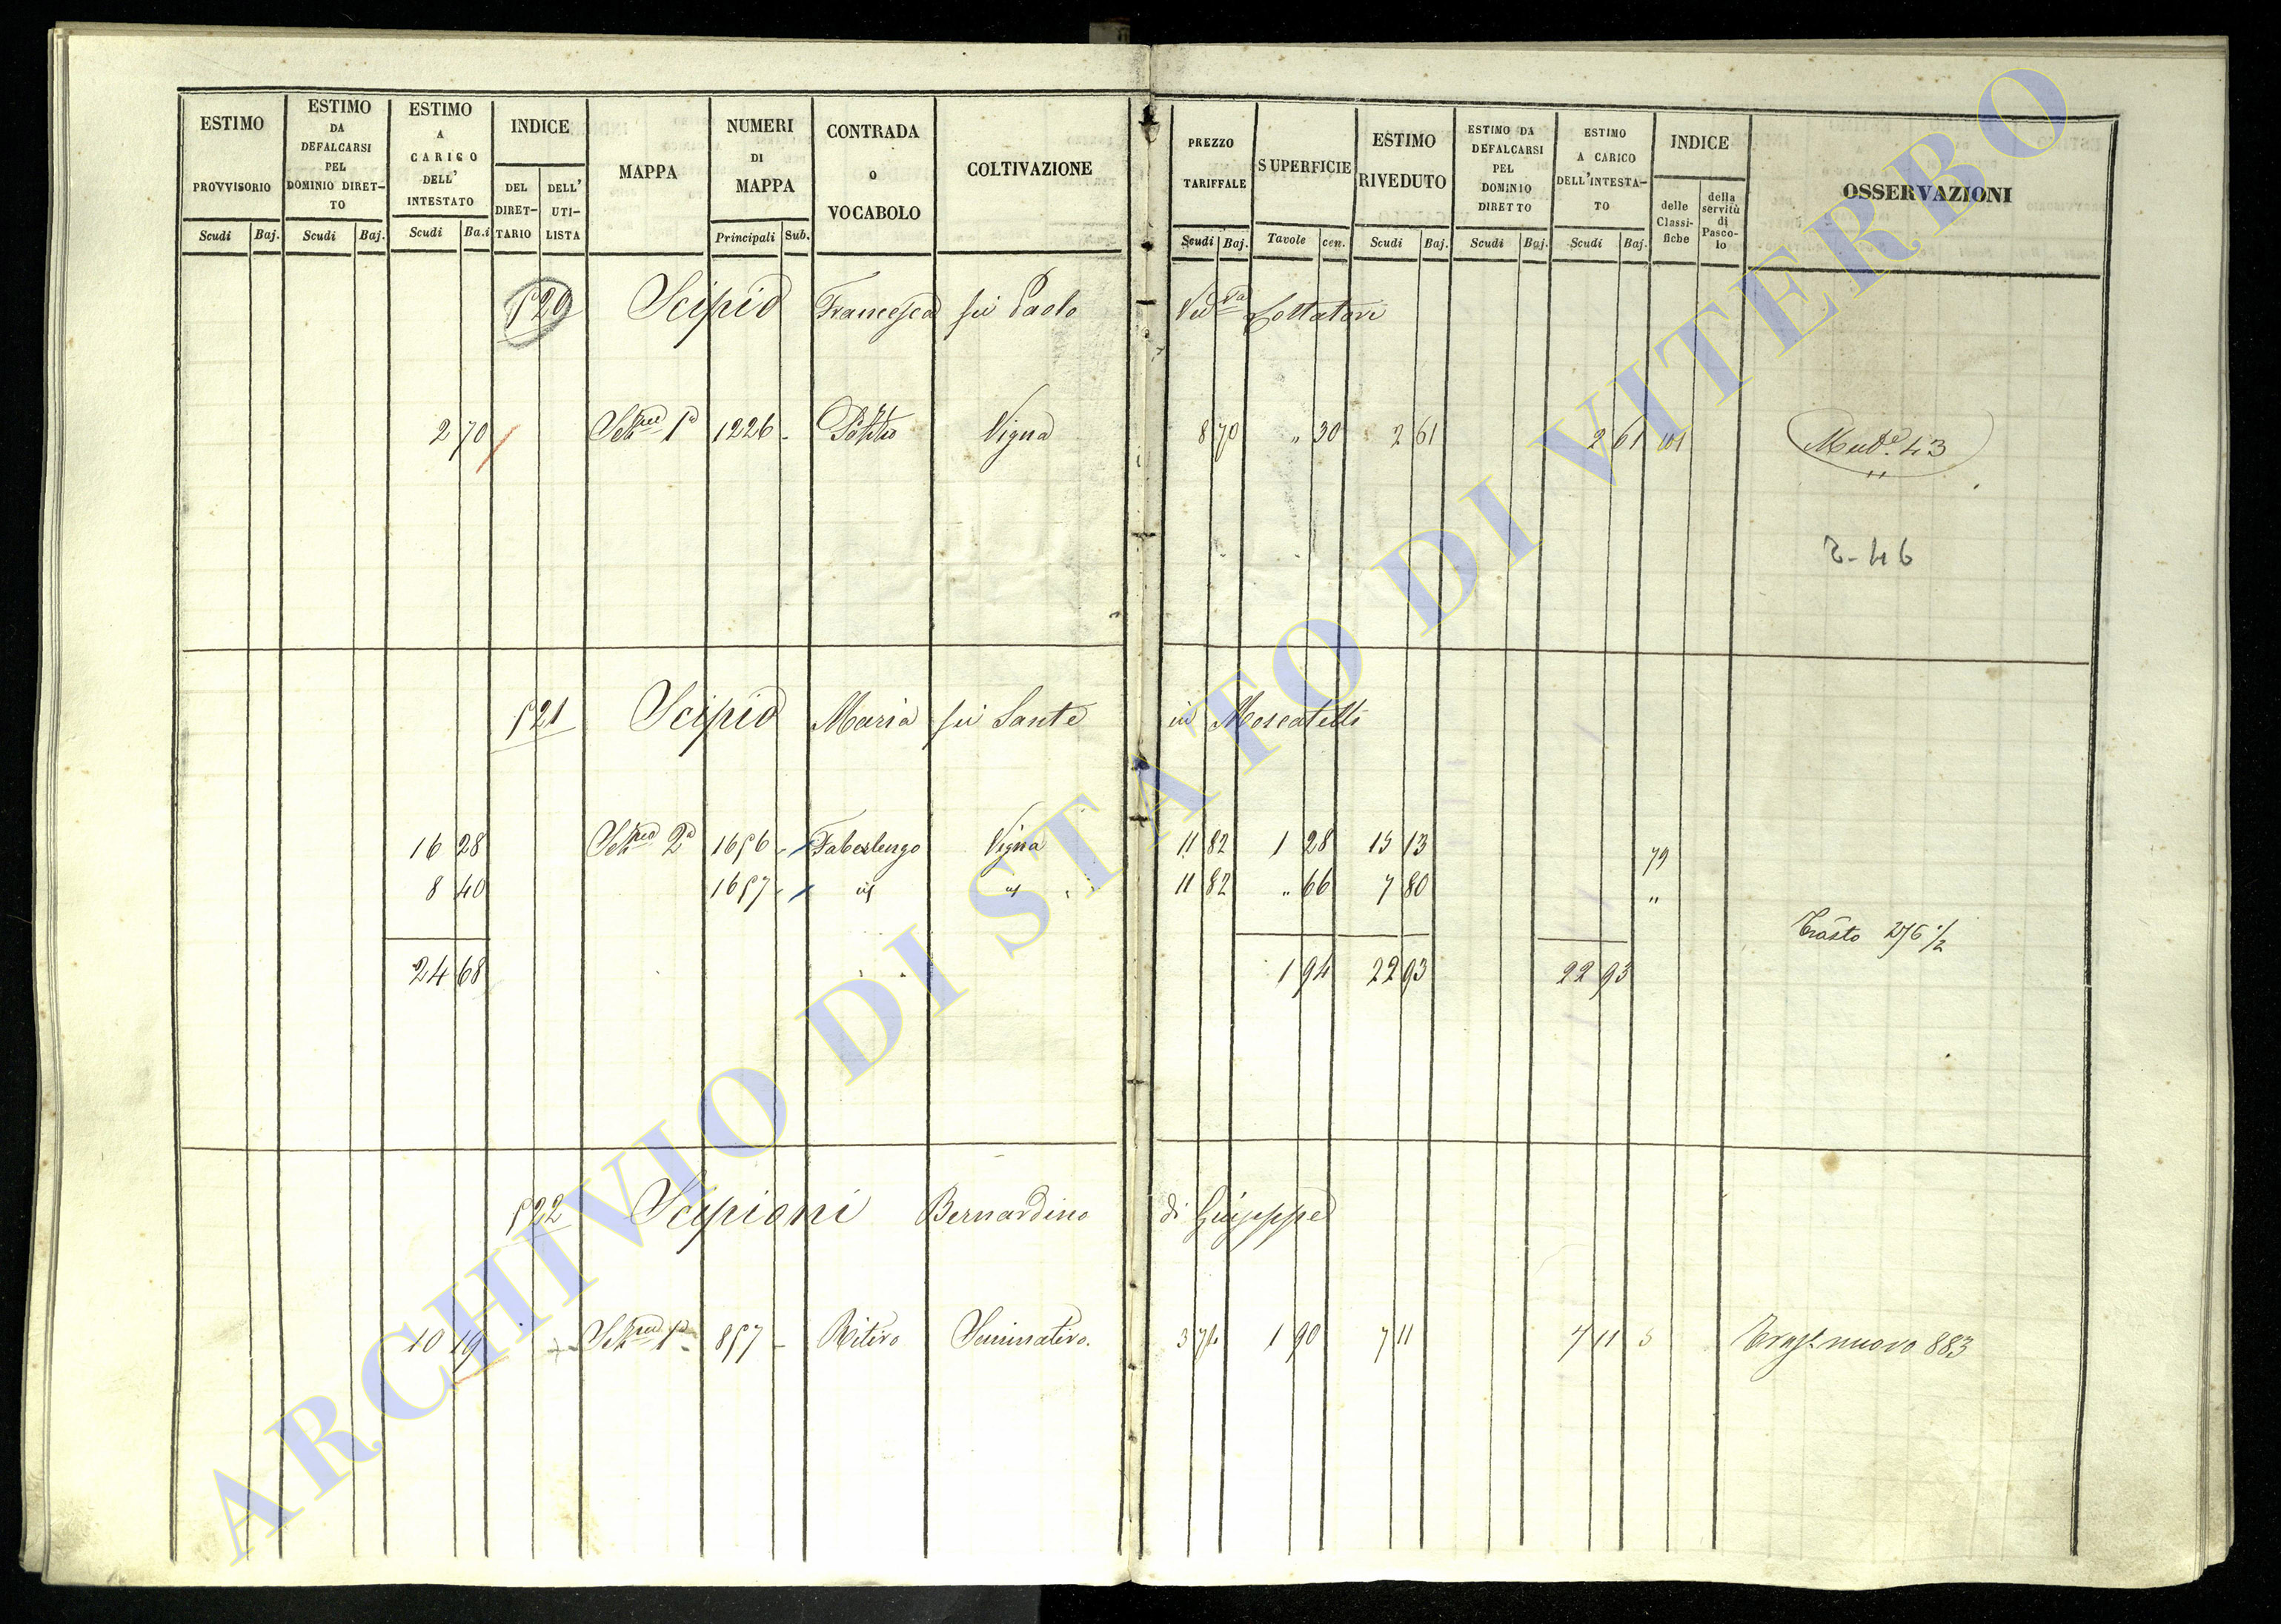 ESTIMO PROVVISORIO Scudi Baj.
ESTIMO DA DEFALCARSI PEL DOMINIO DIRETTO Scudi Baj.
ESTIMO A CARICO DELL' INTESTATO Scudi Ba.i
INDICE DEL DIRETTARIO DELL' UTILISTA
MAPPA
NUMERI DI MAPPA Principali Sub.
CONTRADA O VOCABOLO
COLTIVAZIONE
PREZZO TARIFFALE Scudi Baj.
SUPERFICIE Tavole cen.
ESTIMO RIVEDUTO Scudi Baj.
ESTIMO DA DEFALCARSI PEL DOMINIO DIRETTO Scudi Baj.
ESTIMO A CARICO DELL'INTESTATO Scudi Baj.
INDICE delle Classifiche della servitù di Pascolo
OSSERVAZIONI
520 Scipio Francesca fu Paolo Vid.va Lottatori
2 70 1226 - Vigna 8 70 " 30 2 61 2 61 101 43
521 Scipio Maria fu Sante in Moscatelli
16 28 2a 1656 - Vigna 11 82 1 28 15 13 79
8 40 1657 - 11 82 " 66 7 80 "
276 1/2
24 68 1 94 22 93 22 93
522 Scipioni Bernardino di Giuseppe
10 19 857 - Ritiro Seminativo. 1 90 7 11 7 11 5 nuovo 883
ARCHIVIO DI STATO DI VITERBO